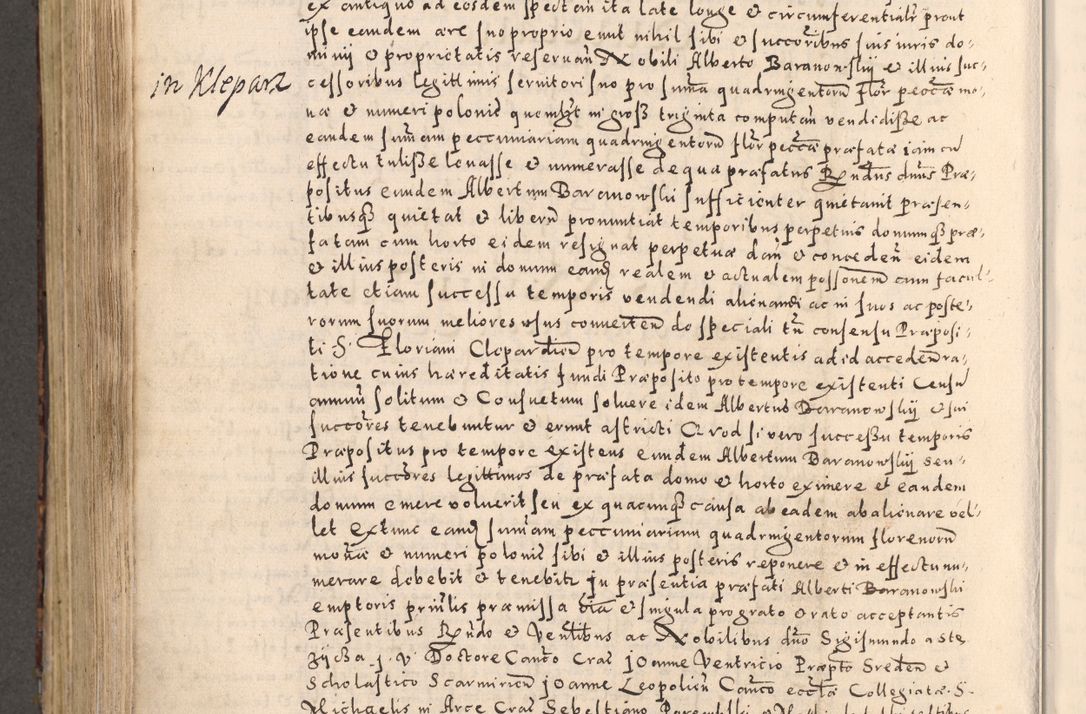 ex antiquo ad eosdem spectan ita late longe et circumferentialr prout
ipse eandem arc suo proprio emit nihil sibi et succoribus suis iuris do-
minij et proprietatis reseruan Nobili Alberto Baranowskij et illius suc-
in Klepars
cessoribus legitimis seruitori suo pro suma quadringentoru flor pecciæ mo-
næ et numeri polonic quemlꝫt in gross triginta computan vendidisse ac
eandem sumam peccuniariam quadringentoru flor peccia præfatæ iam cu
effectu tulisse leuasse et numerasse de qua præfatus Rndus dnus Præ-
positus eundem Albertum Baranowskii sufficienter quietauit præsen-
tibusqꝫ quietat et liberu pronuntiat temporibus perpetuis domumqꝫ præ-
fatam cum horto eidem resignat perpetuæ dan et conceden eidem
et illius posteris in domum eand realem et actualem possonem cum facul-
tate etiam successu temporis vendendi alienandi ac in suos ac poste-
rorum suorum meliores vsus conuerten do speciali tn consensu Præposi-
ti S. Floriani Clepardien pro tempore existentis ad id acceden ra-
tione cuius hæreditatis fundi Præposito pro tempore existenti Censu
annuu solitum et Consuetum soluere idem Albertus Baranowskij et sui
succores tenebuntur et erunt astricti Quod si vero successu temporis
Præpositus pro tempore existens eundem Albertum Baranowskij seu
illius succores legittimos de præfata domo et horto eximere et eandem
domum emere voluerit seu ex quacumqꝫ causa ab eadem abalienare vel-
let extunc eand sumam peccuniarium quadringentorum florenoru
monæ et numeri polonic sibi et illius posteris reponere et in effectu nu-
merare debebit et tenebitr in præsentia præfati Alberti Baranowskii
emptoris pnilis præmissa oia et singula pro grato et rato acceptantis
Præsentibus Rndo et Venlibus ac Nobilibus dno Sigismundo a Ste
zijcza J. V. Doctore Canco Crac Joanne Ventricio Præpto Sreden et
Scholastico Scarmirien Joanne Leopolien Canco ecclæ Collegiatæ S.
Michaelis in Arce Crac Sebestiano